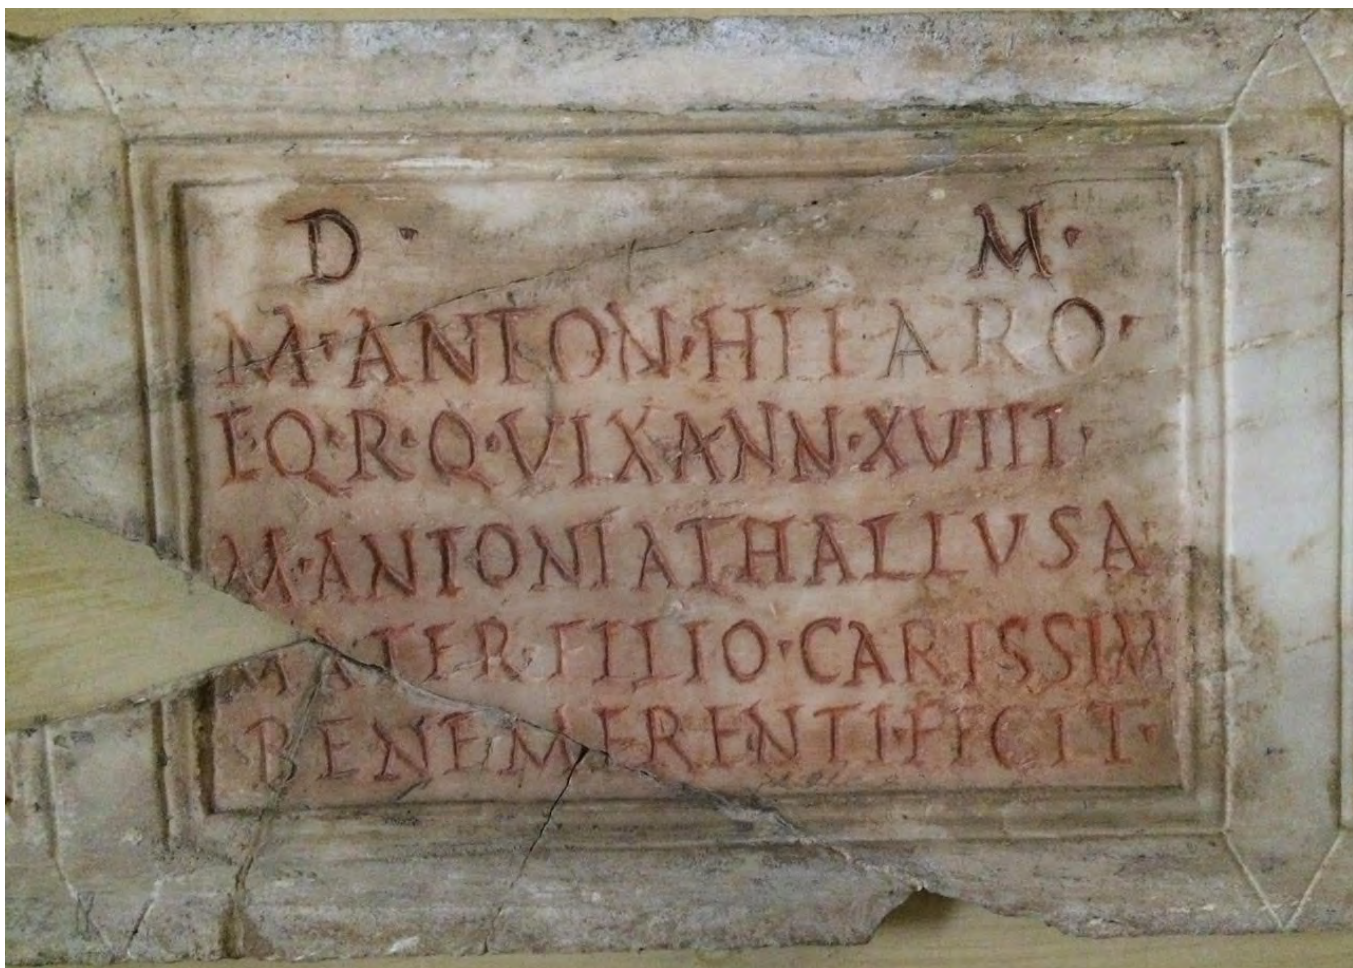 D · M ·
M · ANTON · HILARO ·
EQ · R · Q · VIX ANN · XVIIII ·
M · ANTONIA THALLVSA ·
MATER · FILIO · CARISSIM
BENEMERENTI · FECIT ·